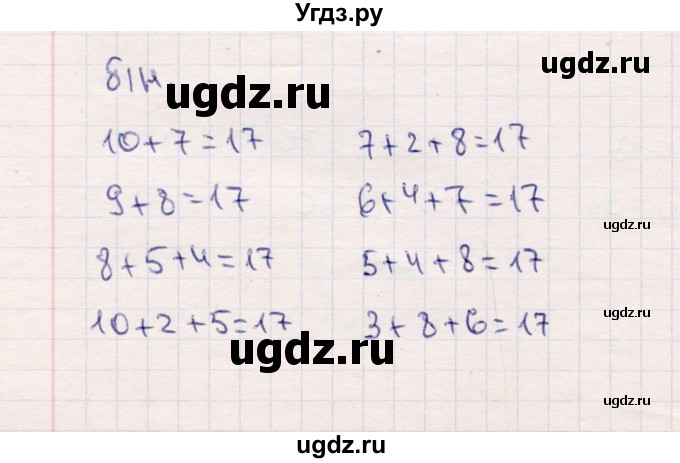 Угдз.ру
б|н
ugdz.ru
10+7=17 7+2+8=17
9+8=17 6+4+7=17
ugdz.ru
8+5+4=17 5+4+8=17
10+2+5=17 3+8+6=17
ugdz.ru
ugdz.ru
ugdz.ru